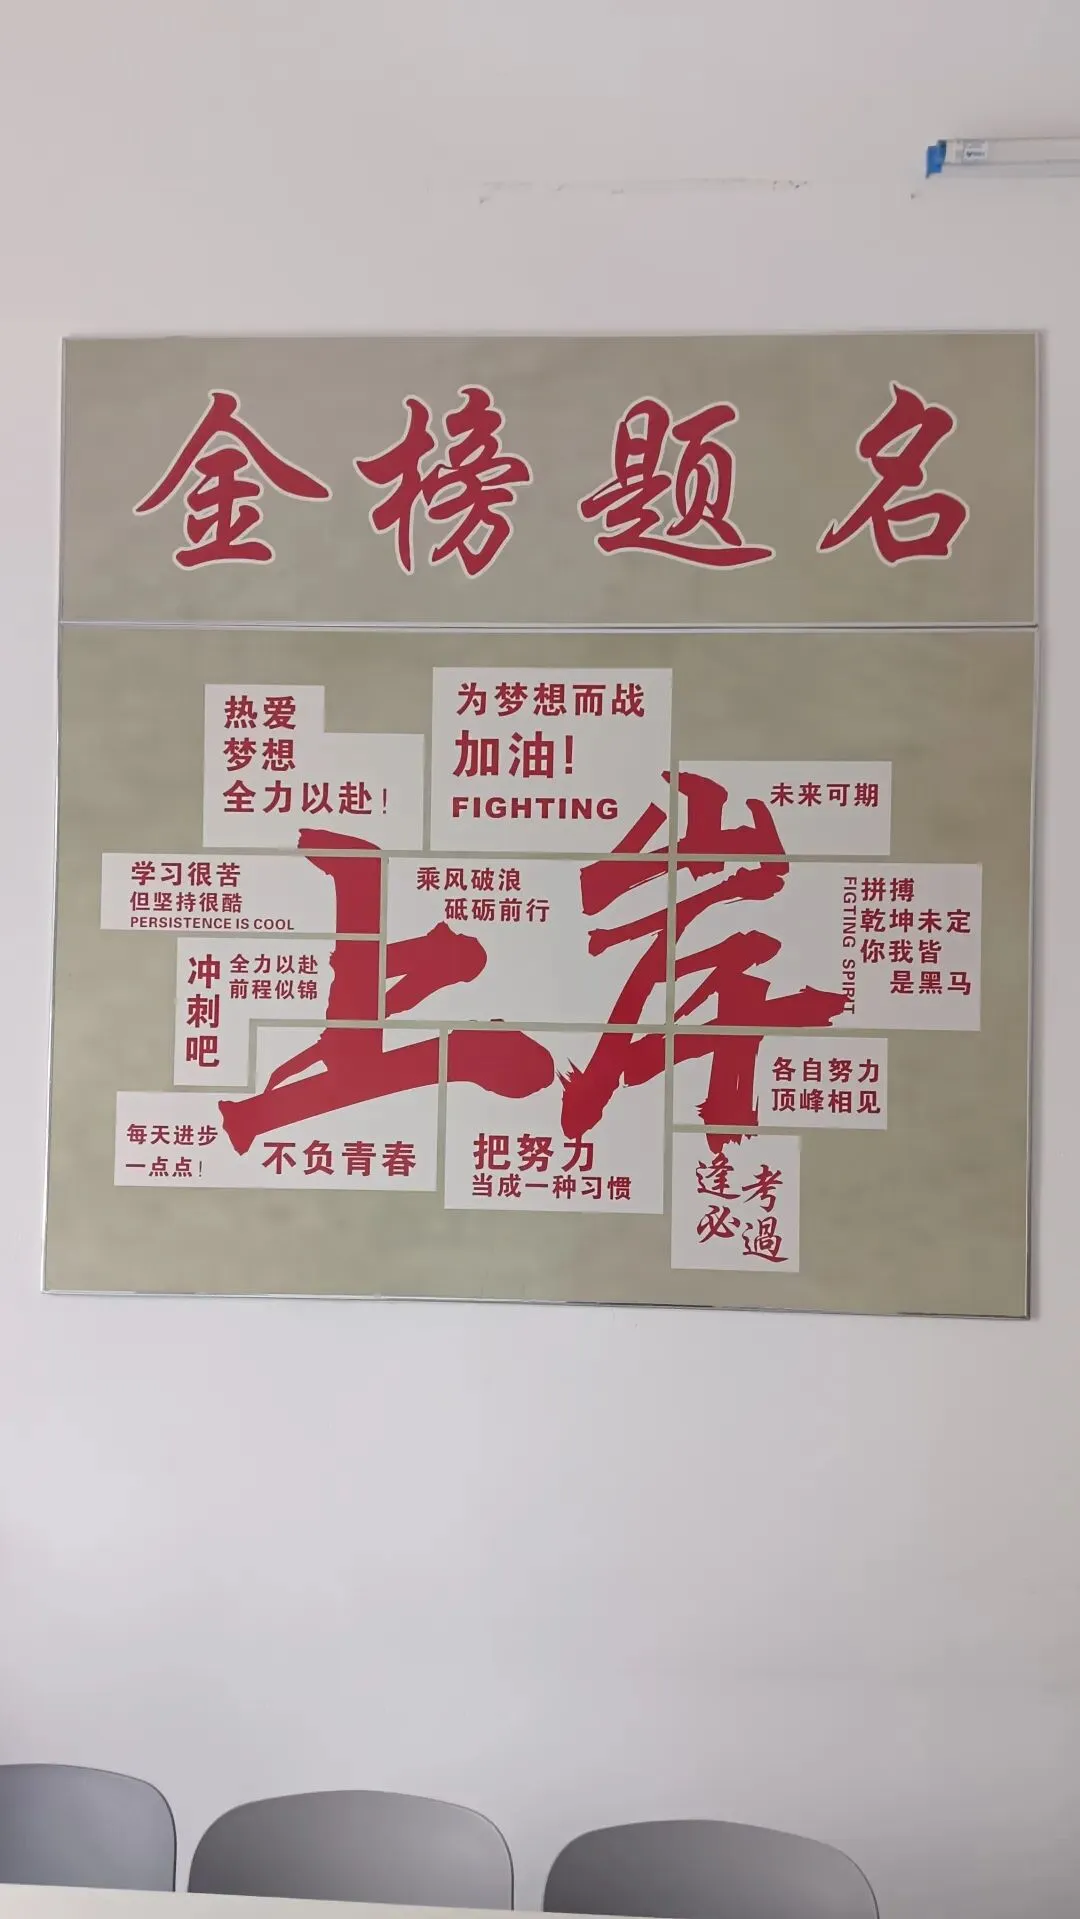 金榜题名
热爱
梦想
全力以赴!
为梦想而战
加油!
FIGHTING
未来可期
上岸
学习很苦
但坚持很酷
PERSISTENCE IS COOL
乘风破浪
砥砺前行
FIGTING SPIRIT
拼搏
乾坤未定
你我皆
是黑马
冲刺吧
全力以赴
前程似锦
各自努力
顶峰相见
每天进步
一点点!
不负青春
把努力
当成一种习惯
逢考
必過